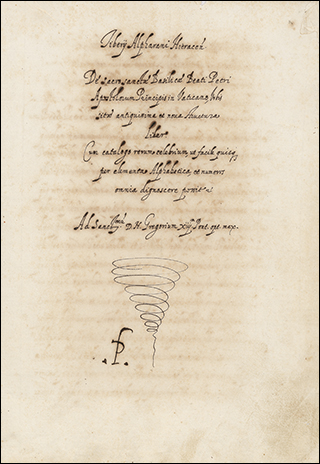 Tiberij Alpharani Hieracen̄
De sacrosanctae Basilicae Beati Petri
Apostolorum Principis in Vaticano Urbis
situ antiquissima et noua structura
liber
Cum catalogo rerum celebrium, ut facile quisq
per elementa Alphabetica, et numeros
omnia dignoscere possit
Ad Sanctmū. D. N. Gregorium xiij Pont. opt. max.